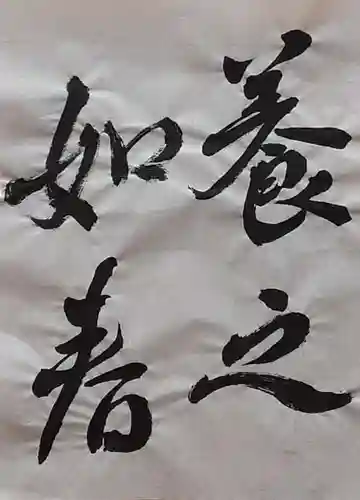 養之
如春